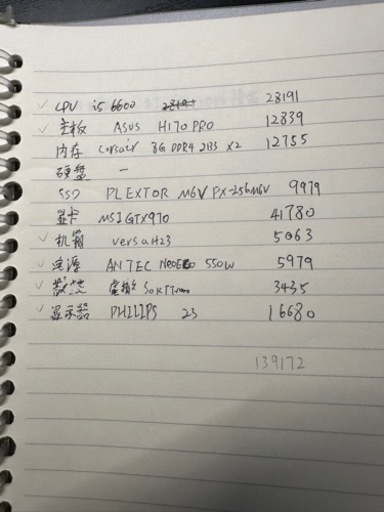 ✓ CPU i5 6600 28191
✓ 主板 ASUS H170 PRO 12839
内存 Corsair 8G DDR4 2133 X2 12755
硬盘 —
SSD PLEXTOR M6V PX-256M6V 9979
显卡 MSI GTX970 41780
✓ 机箱 versa H23 5063
✓ 电源 ANTEC NeoECO 550W 5979
✓ 散热 3435
✓ 显示器 PHILIPS 23 16680
139172